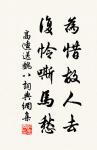 為惜故人去
復憐嘶馬愁
高適送魏八詞典網集